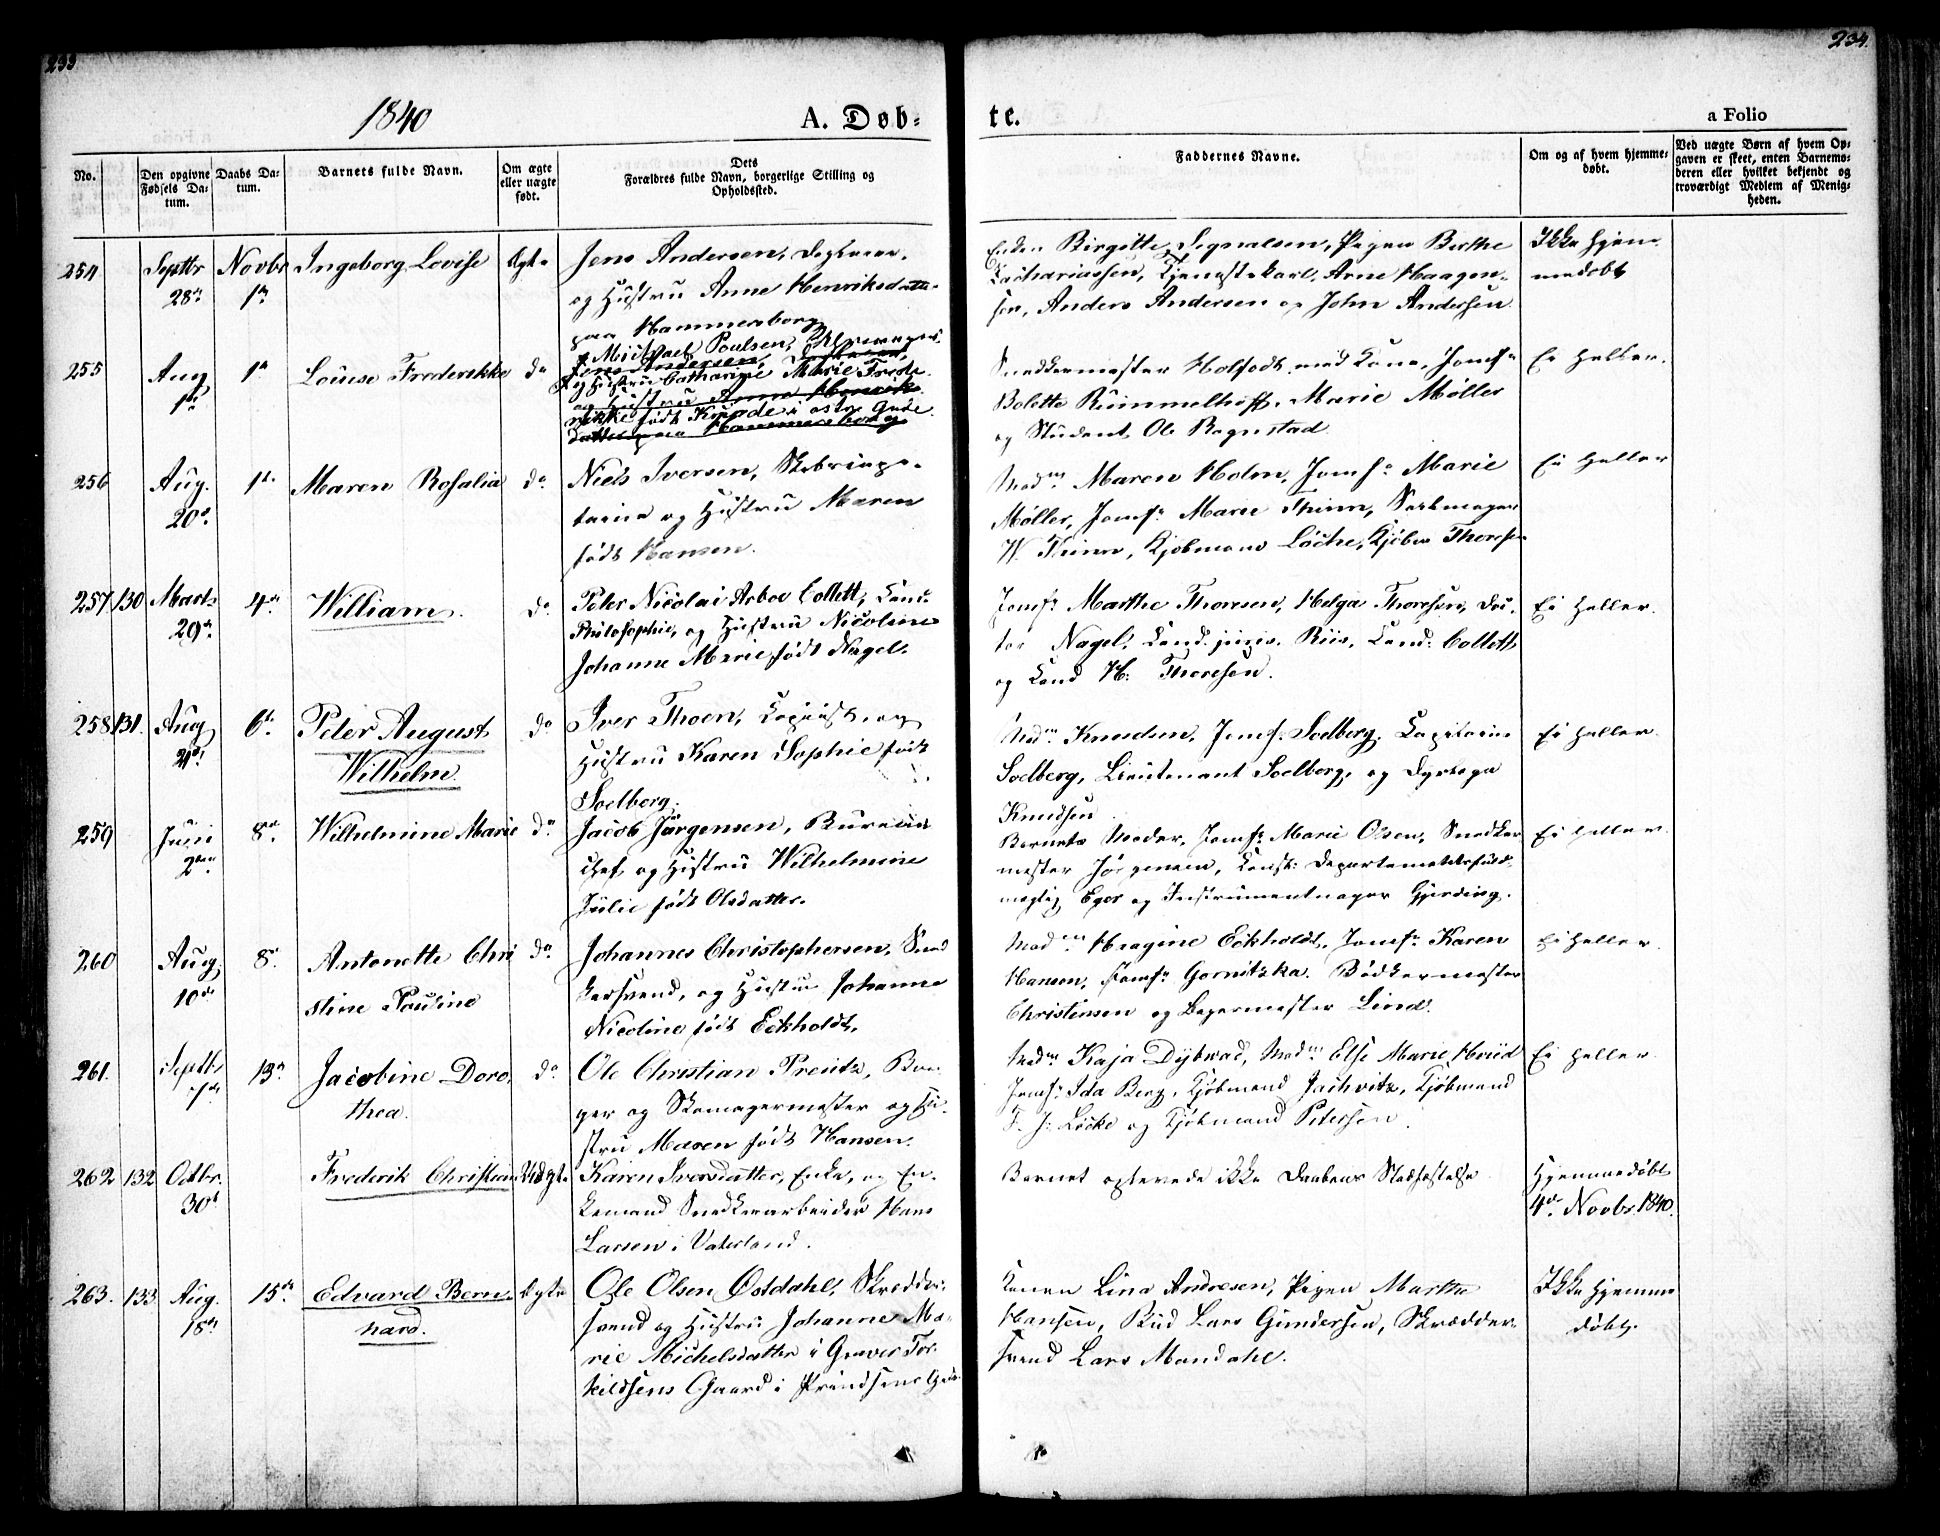 233
234.
1840
A. Døb-
te.
a Folio
No.
Den opgivne Fødsels Da-tum.
Daabs Da-tum.
Barnets fulde Navn.
Om ægte eller uægte født.
Dets Forældres fulde Navn, borgerlige Stilling og Opholdssted.
Faddernes Navne.
Om og af hvem hjemme-døbt.
Ved uægte Børn af hvem Op-gaven er skeet, enten Barnemo-deren eller hvilket bekjendt og troværdigt Medlem af Menig-heden.
254 Septbr 28de Novbr 1ste Ingeborg Lovise Ægte
Jens Andersen, Dagleier,
og Hustru Anne Henriksdatter
paa Hammersborg
Enken Birgitte Segnalsen, Pigen Berthe
Zachariassen, Tjenestekarl Arne Haagen-
sen, Anders Andersen og John Andersen
Ikke hjem
medøbt
255 Aug 1ste 1ste Louise Frederikke do
Michael Poulsen,
Jens Andersen, Dagleier,
og Hustru Catharine Marie Frede-
og Hustru Anne Henriks
rikke født Krunde i østr Gade
datter paa Hammersborg
Snedkermester Holfodt med Kone, Jomfr
Bolette Rummelhoff, Marie Møller
og Student Ole Rognstad
Ei heller.
256 Aug. 20de 1ste Maren Rosalia do
Niels Iversen,
og Hustru Maren
født Hansen.
Madm Maren Holm, Jomfr Marie
Møller, Jomfr Marie Thinn,
W. Thinn, Kjøbmand Løche, Kjøbm Thoresen
Ei heller
257 130 Marts 29de 4de William do
Peter Nicolai Arboe Collett, Cand:
Philosophie, og Hustru Nicoline
Johanne Marie født Nagel.
Jomfr Marthe Thoresen, Helga Thoresen, Doc-
tor Nagel, Cand. juris. Riis, Cand: Collett
og Cand H: Thoresen.
Ei heller.
258 131. Aug 21de 6te Peter August
Wilhelm do
Iver Thoen, Copiist, og
Hustru Karen Sophie født
Soelberg.
Madm Knudsen, Jomf. Soelberg, Capitaine
Soelberg, Lieutenant Soelberg, og Dyrlæge
Knudsen
Ei heller.
259 Juni 2den 8de Wilhelmine Marie do
Jacob Jørgensen, Bureau
chef, og Hustru Wilhelmine
Julie født Olsdatter.
Barnets Moder, Jomfr Marie Olsen, Snedker
mester Jørgensen, Const: Departementsfuld-
mægtig Eger og Instrumentmager Gjerding.
Ei heller.
260 Aug. 10de 8de Antonette Chri
stine Pauline do
Johannes Christophersen, Sned
kersvend, og Hustru Johanne
Nicoline født Eckholdt.
Madm Hragine Eckholdt, Jomfr Karen
Hansen, Jomfr Garnitzka. Bødkermester
Christensen og Bagermester Lind.
Ei heller.
261. Septbr 13de Jacobine Doro-
thea. do
Ole Christian Preutz, Bor-
ger og Skomagermester og Hu-
stru Maren født Hansen.
Madm Kaja Dybwad, Madm Else Marie Hviid
Jomfr Ida Berg, Kjøbmand Jachwitz, Kjøbmand
F. J. Løcke og Kjøbmand Petersen.
Ei heller.
262 132 Octbr. 30te Frederik Christian Uægte
Karen Iversdatter, Enke, og En-
kemand Snedkerarbeider Hans
Larsen i Vaterland.
Barnet oplevede ikke Daabens Stadfæstelse
Hjemmedøbt
4de Novbr. 1840.
263. 133 Aug. 18de 15de Edvard Bern-
hard. Ægte
Ole Olsen Østdahl, Skrædder-
svend og Hustru Johanne Ma-
rie Michelsdatter i Graver Tor-
kildsens Gaard i Prindsens Gade
Konen Lina Andresen, Pigen Marthe
Hansen, Bud Lars Gundersen, Skrædder-
svend Lars Mandahl.
Ikke hjemme
døbt.